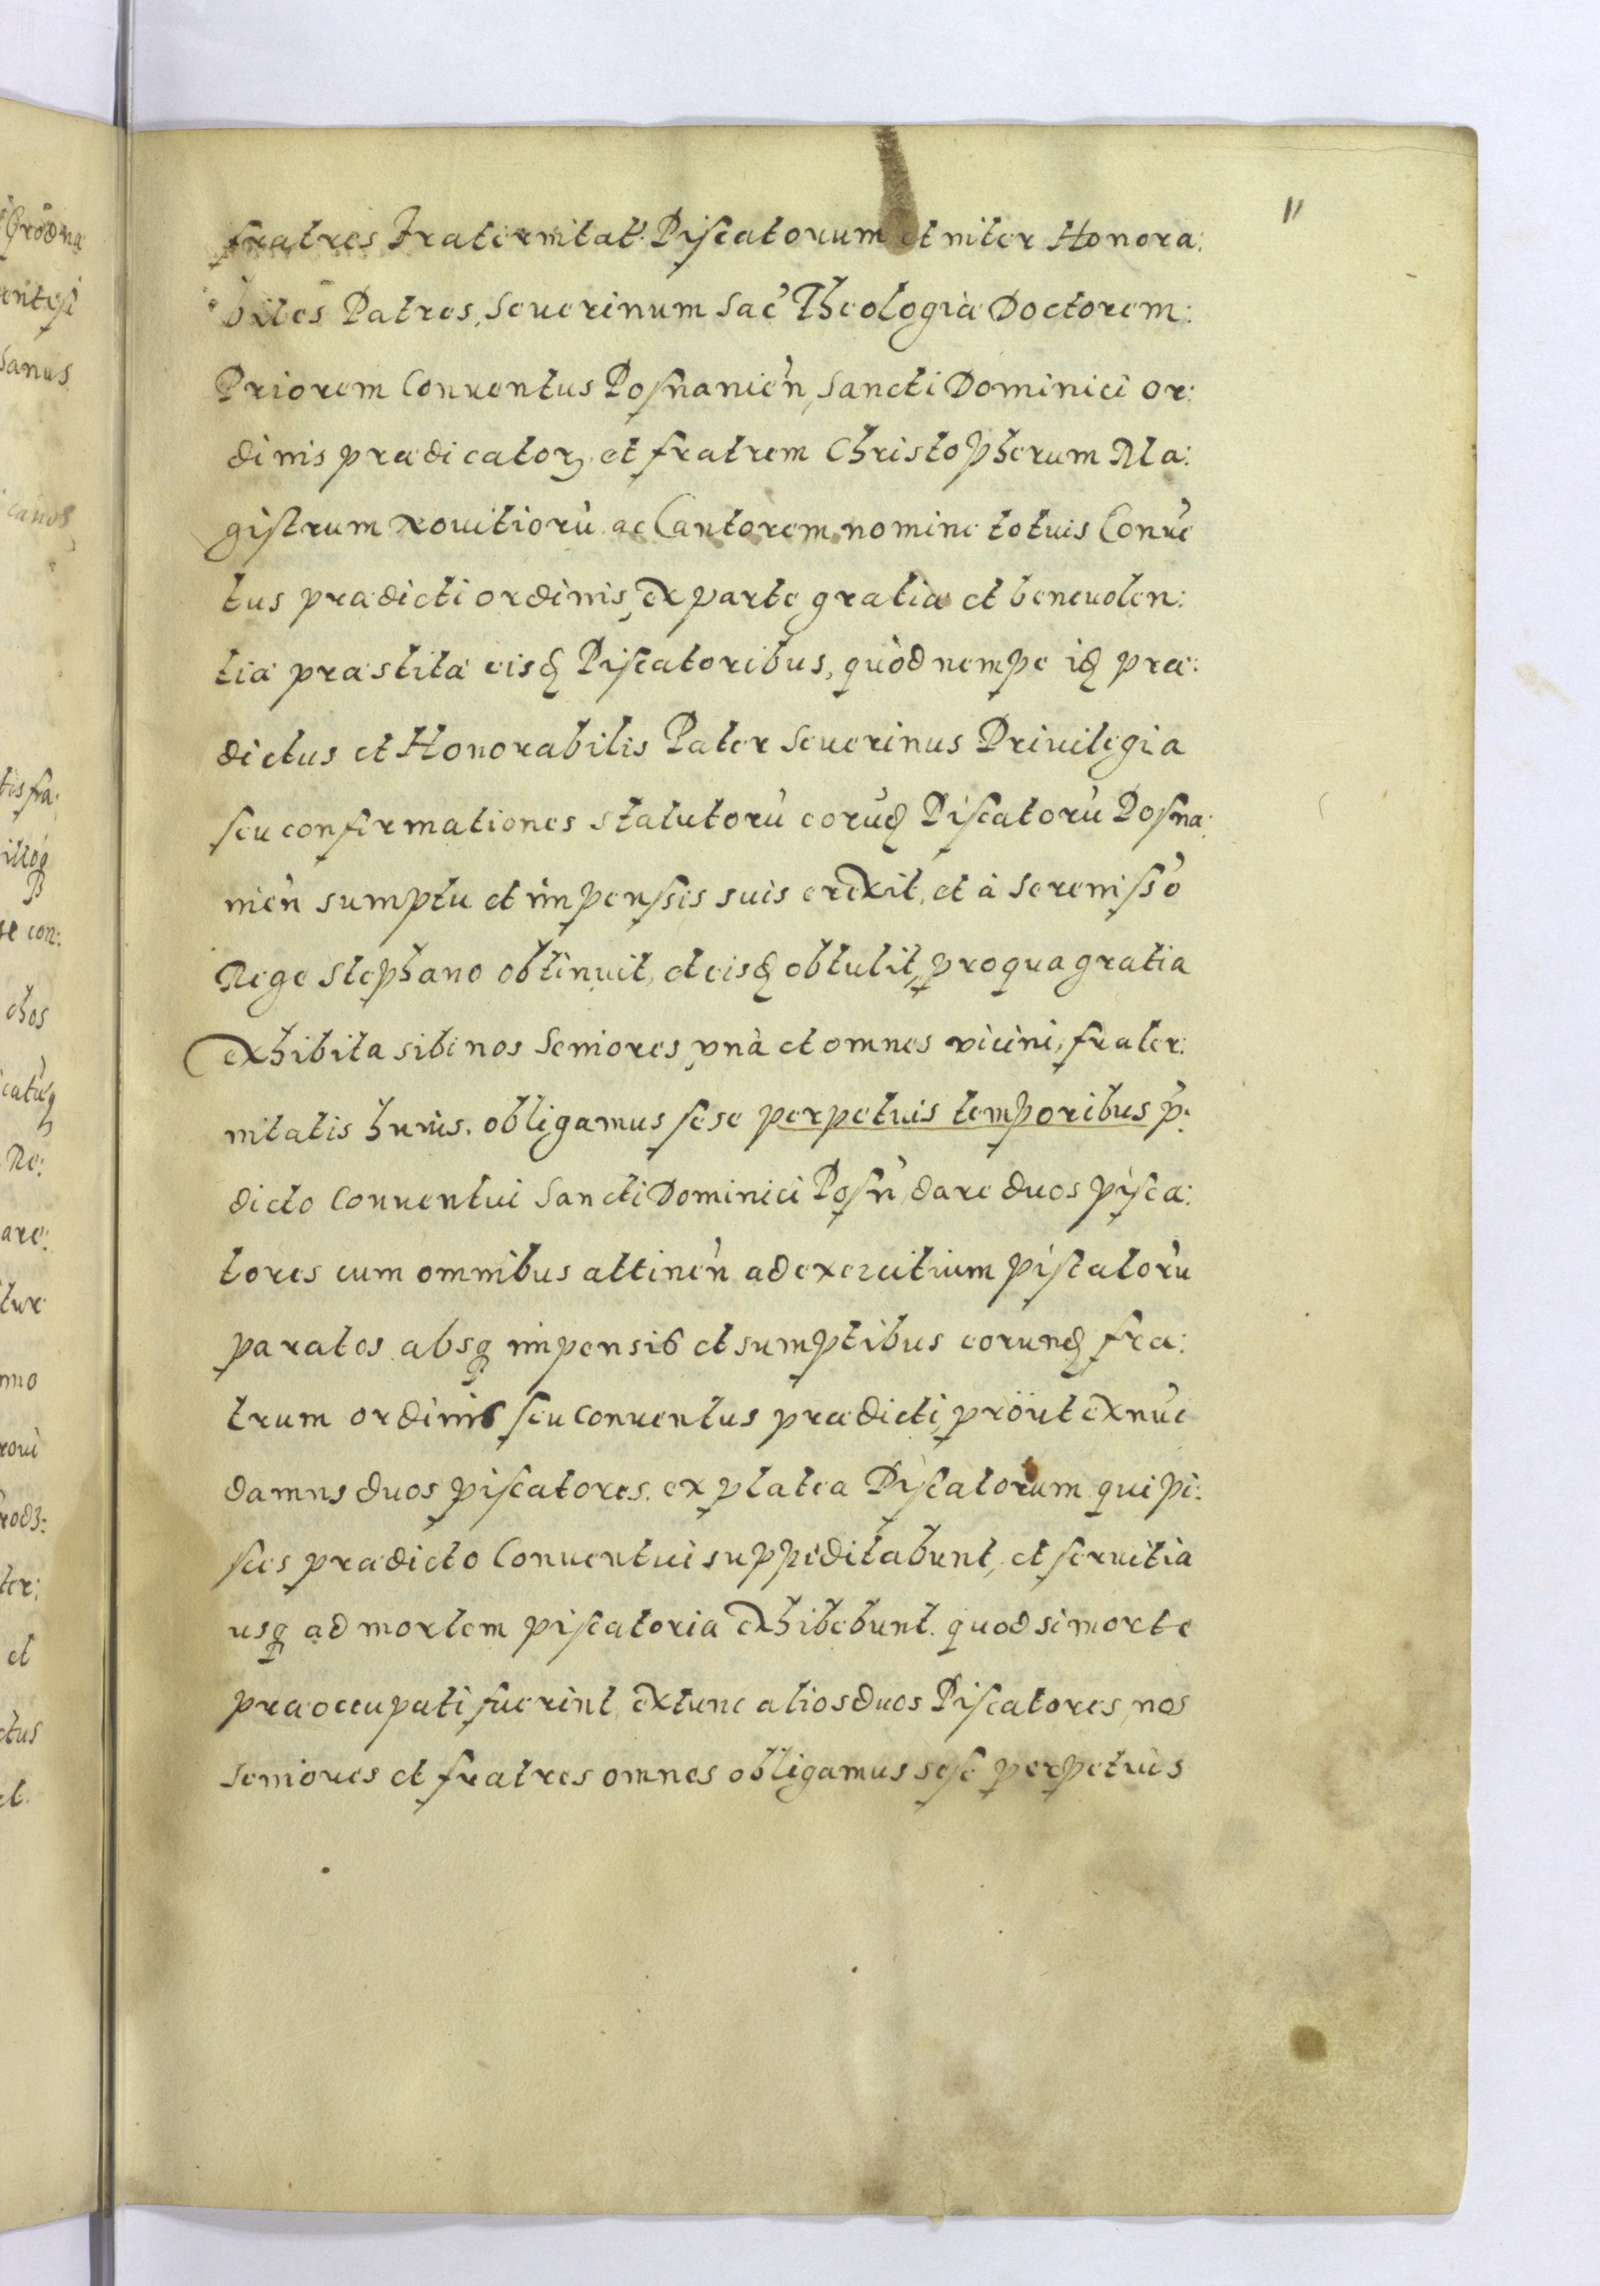 11
fratres Fraternitat: Piscatorum et niter Honora:
biles Patres, Seuerinum Sac̀ Theologiæ Doctorem:
Priorem Conuentus Posnanieǹ, Sancti Dominici or:
dinis prædicatorꝝ et fratrem Christopherum Ma:
gistrum Nouitiorù ac Cantorem nomine totuis Conuẽ
tus prædicti ordinis, ex parte gratiæ et beneuolen:
tiæ præstitæ eisꝗ Piscatoribus, quòd nempe iꝗ præ:
dictus et Honorabilis Pater Seuerinus Priuilegia
seu confirmationes Statutorù eorùꝗ Piscatorù Posna:
nieǹ sumptu et impensis suis erexit, et à Sereniss̀o
Rege Stephano obtinuit, et eisꝗ obtulit, pro qua gratia
exhibita sibi nos Seniores vnà et omnes vicini, frater:
nitatis huius. obligamus sese perpetuis temporibus p̀:
dicto Conuentui Sancti Dominici Posǹ, dare duos pisca:
tores cum omnibus attineǹ ad exercitium piscatorù
paratos absqꝫ impensis et sumptibus eorunꝗ fra:
trum ordinis seu Conuentus prædicti, proüt ex nùc
damus duos piscatores. ex platea Piscatorum qui pi:
sces prædicto Conuentui suppeditabunt, et seruitia
usqꝫ ad mortem piscatoria exhibebunt. quod si morte
præoccupati fuerint, extunc alios duos Piscatores, nos
Seniores et fratres omnes obligamus sese perpetuis